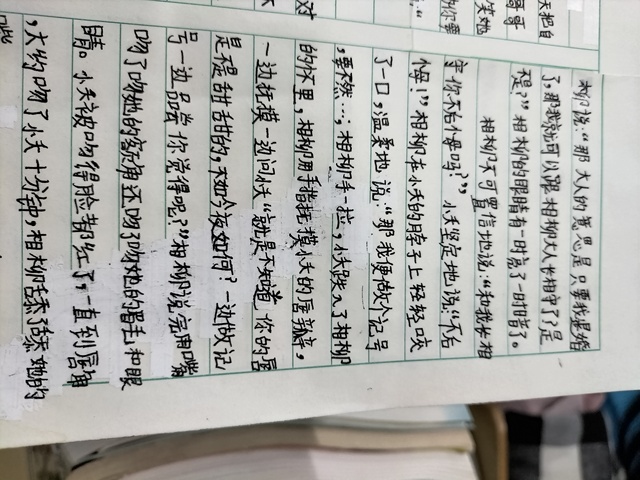 天把自
哥哥
笑她
为你要
对
柳说：“那大人的意思是只要我退婚
了，那我就可以跟相柳大人长相守了？是
不是？”相柳的眼睛有一时亮了一时暗了。
相柳不可置信地说：“和我长相
守你不后悔吗？”小夭坚定地说：“不后
悔！”相柳在小夭的脖子上轻轻咬
了一口，温柔地说：“那我便做个记号
，要不然…，相柳手一拉，小夭跌入了相柳
的怀里，相柳用手指抚摸小夭的唇瓣，
一边抚摸一边问小夭“就是不知道你的唇
是不是甜甜的，不如今夜如何？一边做记
号一边品尝你觉得呢？”相柳说完用嘴
吻了吻她的额角还吻了吻她的眉毛和眼
睛。小夭被吻得脸都红了，一直到唇角
，大约吻了小夭十分钟，相柳舔舔她的